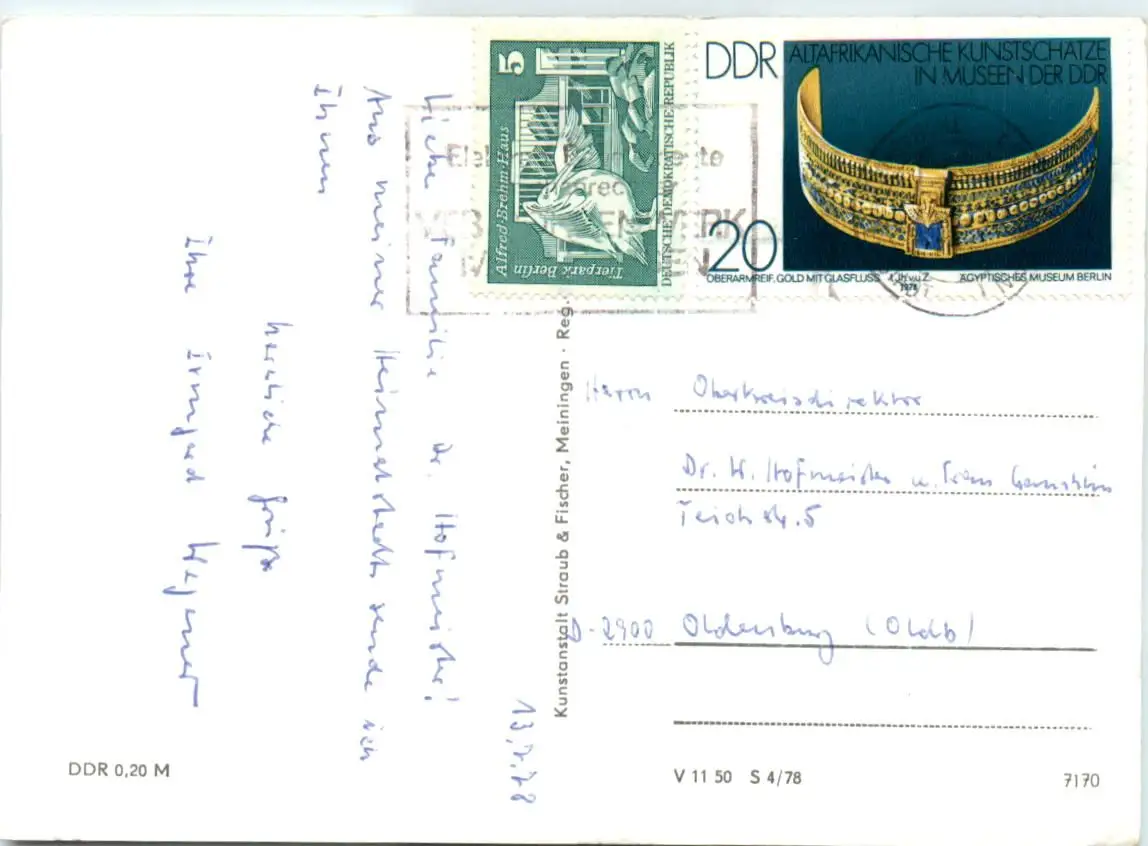 5
Alfred-Brehm-Haus
Tierpark Berlin
DEUTSCHE DEMOKRATISCHE REPUBLIK
DDR ALTAFRIKANISCHE KUNSTSCHÄTZE
IN MUSEEN DER DDR
20
OBERARMREIF, GOLD MIT GLASFLUSS ÄGYPTISCHES MUSEUM BERLIN
1978
13.7.78
Liebe Familie Dr. Hofmeister!
Aus meiner Heimatstadt sende ich
Ihnen
herzliche Grüße
Ihre Irmgard Wegener
Kunstanstalt Straub & Fischer, Meiningen · Reg.
Herrn Oberkreisdirektor
Dr. H. Hofmeister u. Frau
Teichstr. 5
D-2900 Oldenburg (Oldb)
DDR 0,20 M
V 11 50 S 4/78
7170